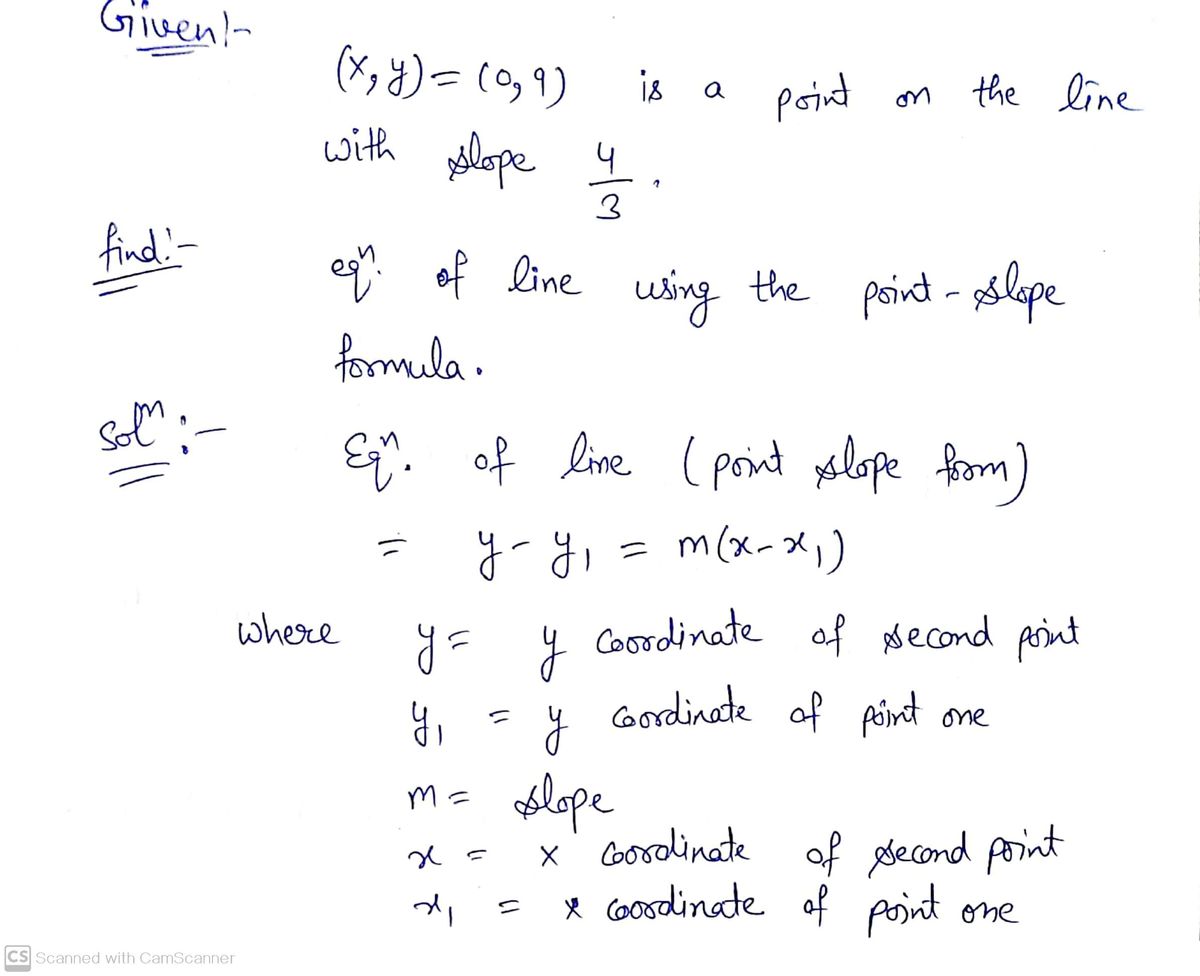 Given:-
(x, y) = (0, 9) is a point on the line
with slope 4/3.
find:-
eqⁿ. of line using the point-slope
formula.
Solⁿ :-
Eqⁿ. of line (point slope form)
= y - y₁ = m(x - x₁)
where y = y coordinate of second point
y₁ = y coordinate of point one
m = slope
x = x coordinate of second point
x₁ = x coordinate of point one
CS Scanned with CamScanner